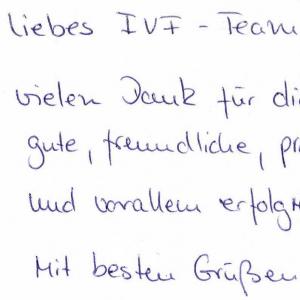 liebes IVF - Team
vielen Dank für di
gute, freundliche, pr
und vorallem erfolgr
Mit besten Grüßen